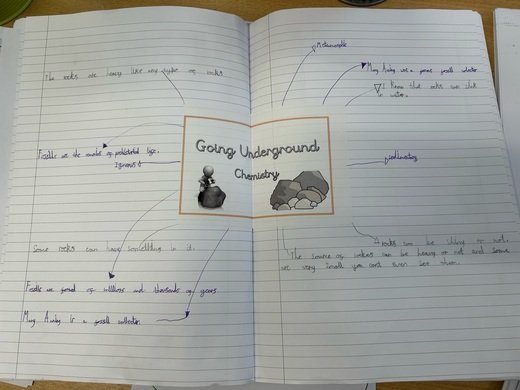 The rocks are heavy like any other rocks
Fossils are the remains of prehistoric life.
Igneous
Some rocks can have something in it.
Fossils are formed of millions and thousands of years
Mary Aning is a fossil collector
Going Underground
Chemistry
Metamorphic
Mary Aning was a famous fossil collector
I know that rocks can sink
in water.
sedimentary
rocks can be shiny or not.
The source of rockes can be heavy or not and some
are very small you cant even see them.